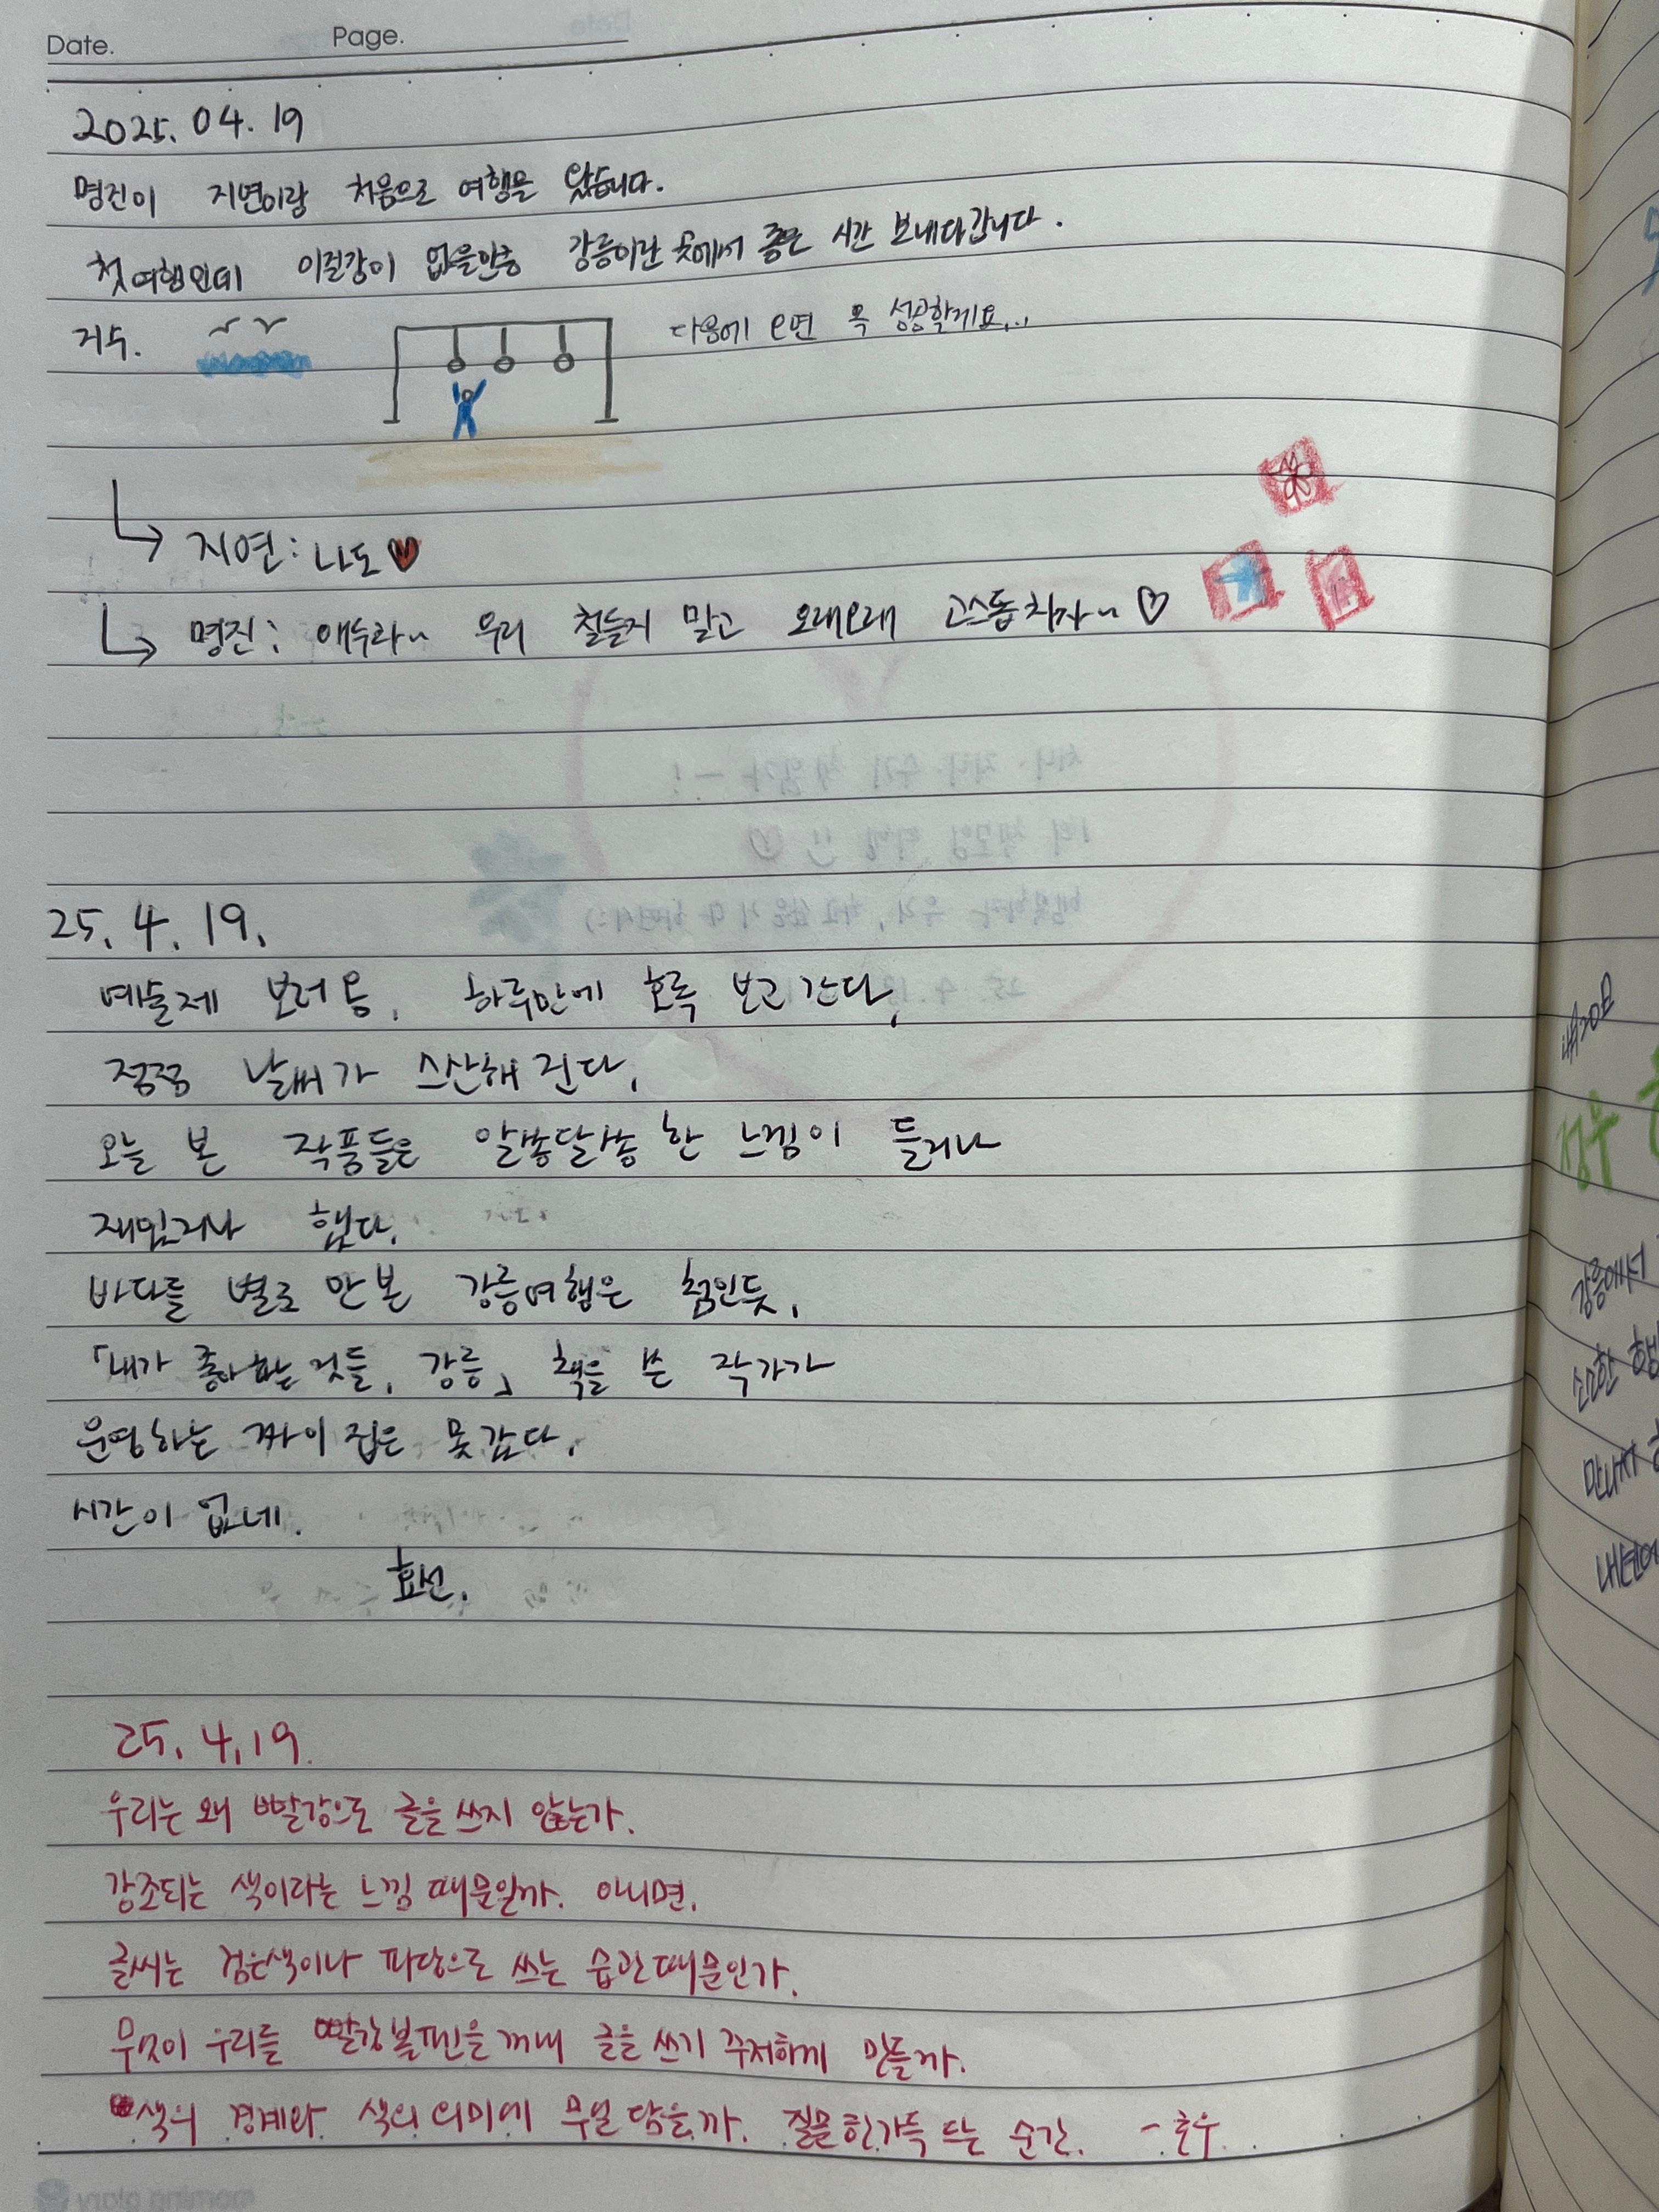 Date. Page.
2025. 04. 19
명진이 지연이랑 처음으로 여행을 왔습니다.
첫여행인데 이질감이 없을만큼 강릉이란 곳에서 좋은 시간 보내다갑니다.
지수. 다음에 오면 꼭 성공할게요...
지연: 나도♥
명진: 얘두라~ 우리 철들지 말고 오래오래 고스톱치자~♡
25. 4. 19.
예술제 보러 옴. 하루만에 호록 보고 간다.
점점 날씨가 스산해진다.
오늘 본 작품들은 알쏭달쏭한 느낌이 들거나
재밌거나 했다.
바다를 별로 안 본 강릉여행은 첨인듯.
「내가 좋아하는 것들, 강릉」 책을 쓴 작가가
운영하는 짜이집은 못 갔다.
시간이 없네.
효선.
25. 4. 19.
우리는 왜 빨강으로 글을 쓰지 않는가.
강조되는 색이라는 느낌 때문일까. 아니면,
글씨는 검은색이나 파랑으로 쓰는 습관때문인가.
무엇이 우리를 빨강볼펜을 꺼내 글을 쓰기 주저하게 만들까.
색의 경계와 색의 의미에 무얼 담을까. 질문 한가득 드는 순간. -호수
강릉에서
소소한 행
만나서